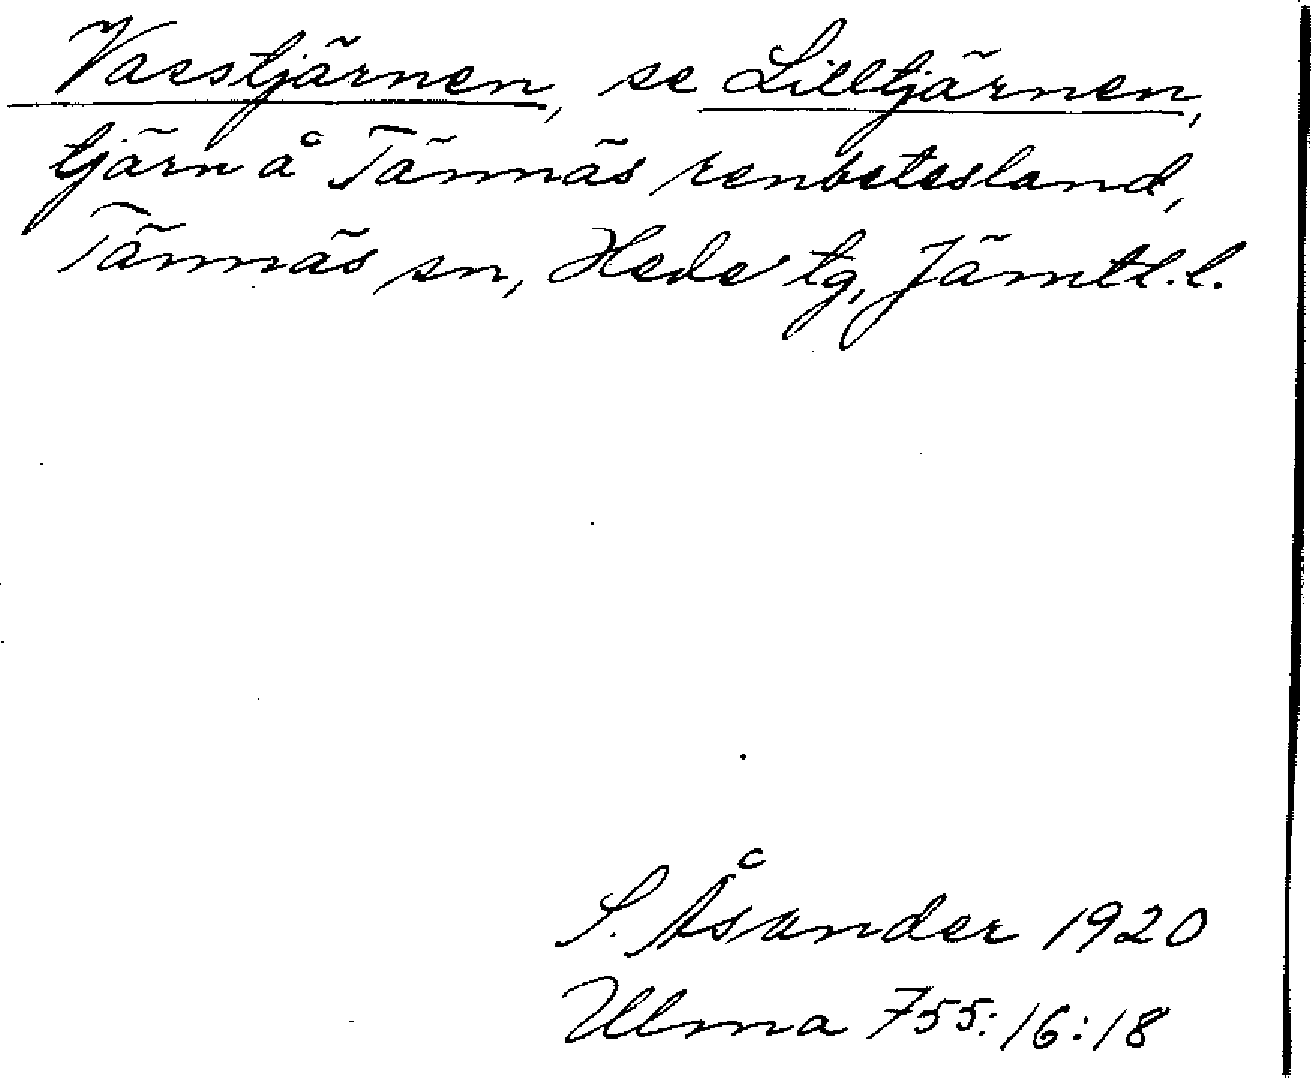 Vasstjärnen, se Lilltjärnen,
tjärn å Tännäs renbetesland,
Tännäs sn, Hede tg, Jämtl.l.
S. Åsander 1920
Ulma 755:16:18